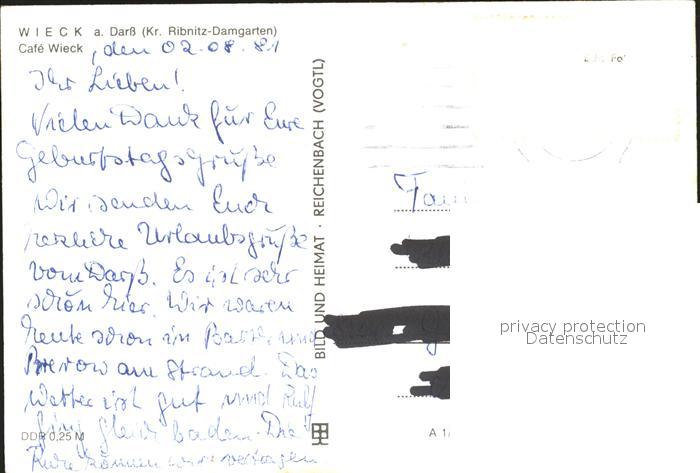 WIECK a. Darß (Kr. Ribnitz-Damgarten)
Café Wieck, den 02.08.81
Ihr Lieben!
Vielen Dank für Eure
Geburtstagsgrüße
Wir senden Euch
herzliche Urlaubsgrüße
vom Darß. Es ist sehr
schön hier. Wir waren
heute schon in Barth und
Prerow am Strand. Das
Wetter ist gut und
ging gleich baden. Die
Ruhe können wir vertragen.
DDR 0,25 M
BILD UND HEIMAT · REICHENBACH (VOGTL)
Fam
A 1/
privacy protection
Datenschutz